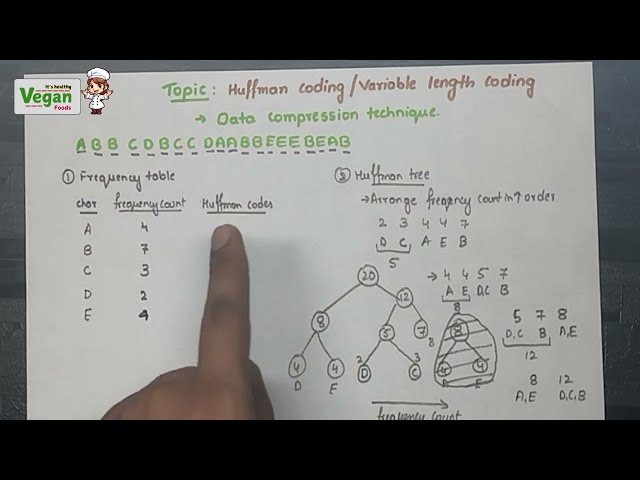 It's healthy
Vegan
Foods
Topic: Huffman coding/Variable length coding
→ Data compression technique.
A B B C D B C C D A A B B E E E B E A B
① Frequency table
char frequency count Huffman codes
A 4
B 7
C 3
D 2
E 4
② Huffman tree
→ Arrange freqency count in ↑ order
2 3 4 4 7
D C A E B
5
→ 4 4 5 7
A E D,C B
8
5 7 8
D,C B A,E
12
8 12
A,E D,C,B
20
8 12
5 7
B
4 4
D E
2 3
D C
8
4 4
A E
frequency count